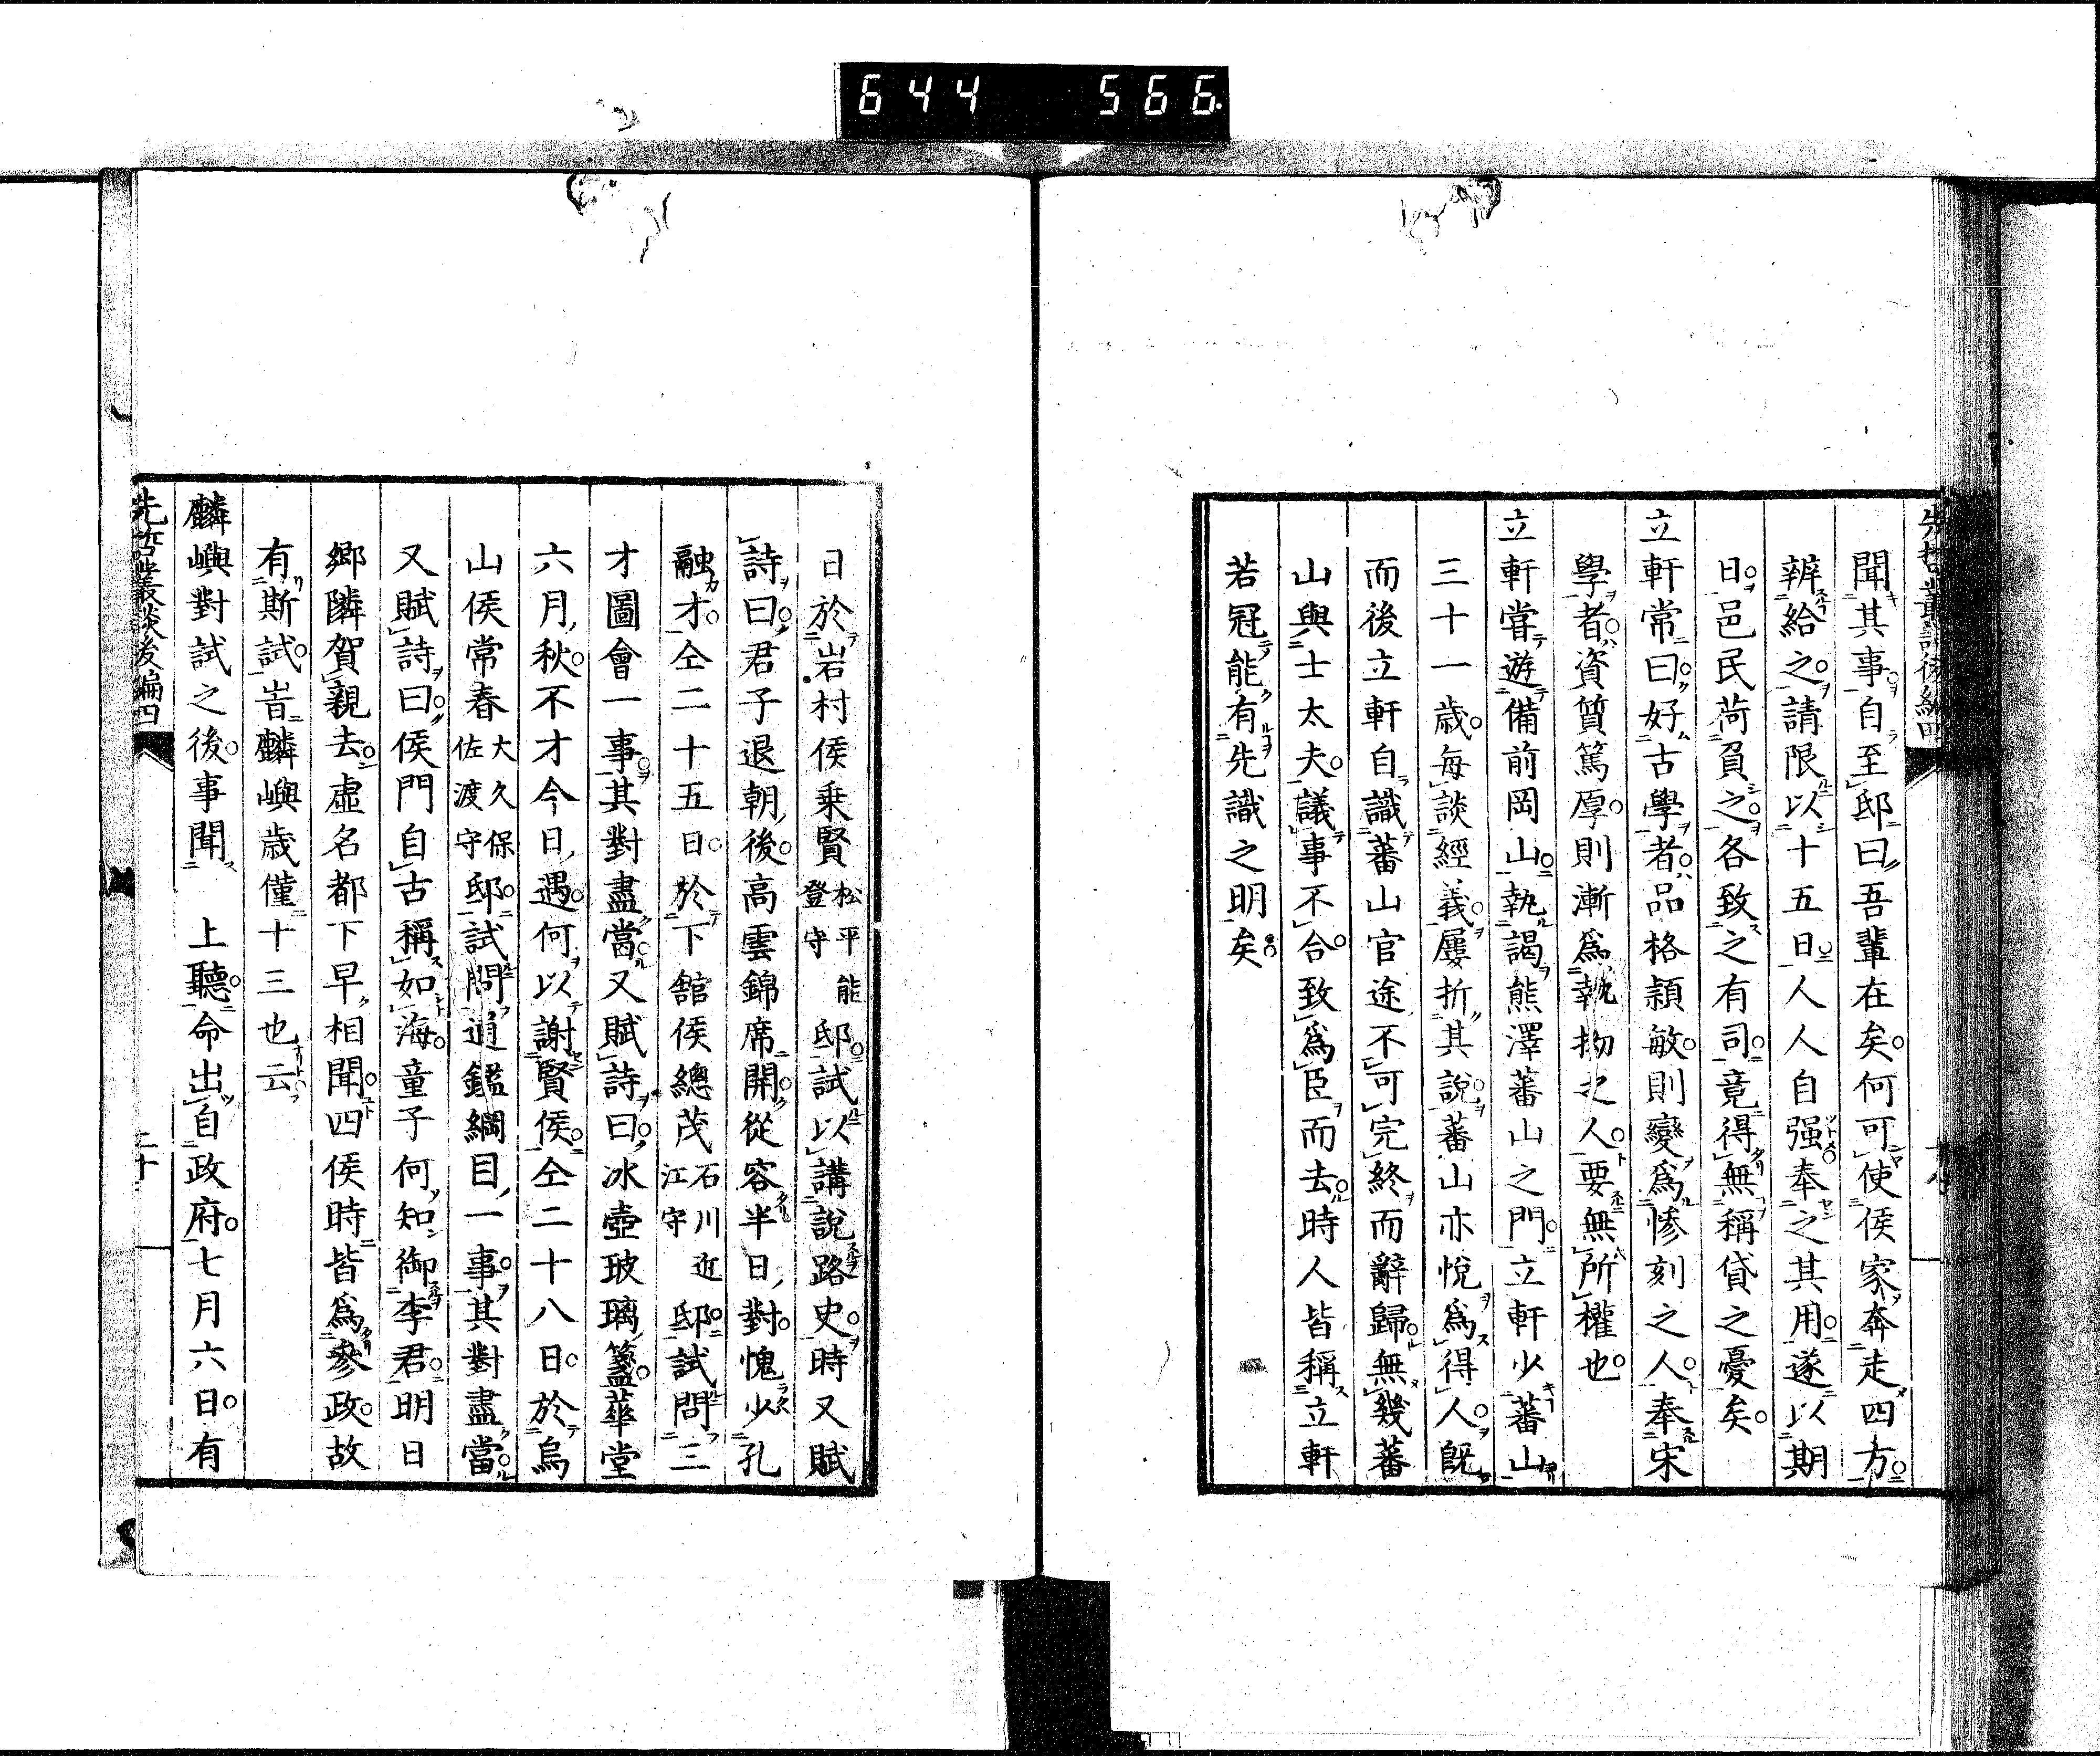 644 566
聞其事自至邸曰吾輩在矣何可使侯家奔走四方
辨給之請限以十五日人人自强奉之其用遂以期
日邑民荷負之各致之有司竟得無稱貸之憂矣
立軒常曰好古學者品格頴敏則變爲慘刻之人奉宋
學者資質篤厚則漸爲執拗之人要無所權也
立軒嘗遊備前岡山執謁熊澤蕃山之門立軒少蕃山
三十一歳每談經義屢折其說蕃山亦悅爲得人旣
而後立軒自識蕃山官途不可完終而辭歸無幾蕃
山與士太夫議事不合致爲臣而去時人皆稱立軒
若冠能有先識之明矣
日於岩村侯乗賢松平能登守邸試以講說路史時又賦
詩曰君子退朝後高雲錦席開從容半日對愧少孔
融才仝二十五日於下舘侯總茂石川近江守邸試問三
才圖會一事其對盡當又賦詩曰冰壺玻璃簋華堂
六月秋不才今日遇何以謝賢侯仝二十八日於烏
山侯常春大久保佐渡守邸試問通鑑綱目一事其對盡當
又賦詩曰侯門自古稱如海童子何知御李君明日
鄉隣賀親去虛名都下早相聞四侯時皆爲參政故
有斯試旹麟嶼歳僅十三也云
麟嶼對試之後事聞 上聽命出自政府七月六日有
先哲叢談後編四
二十